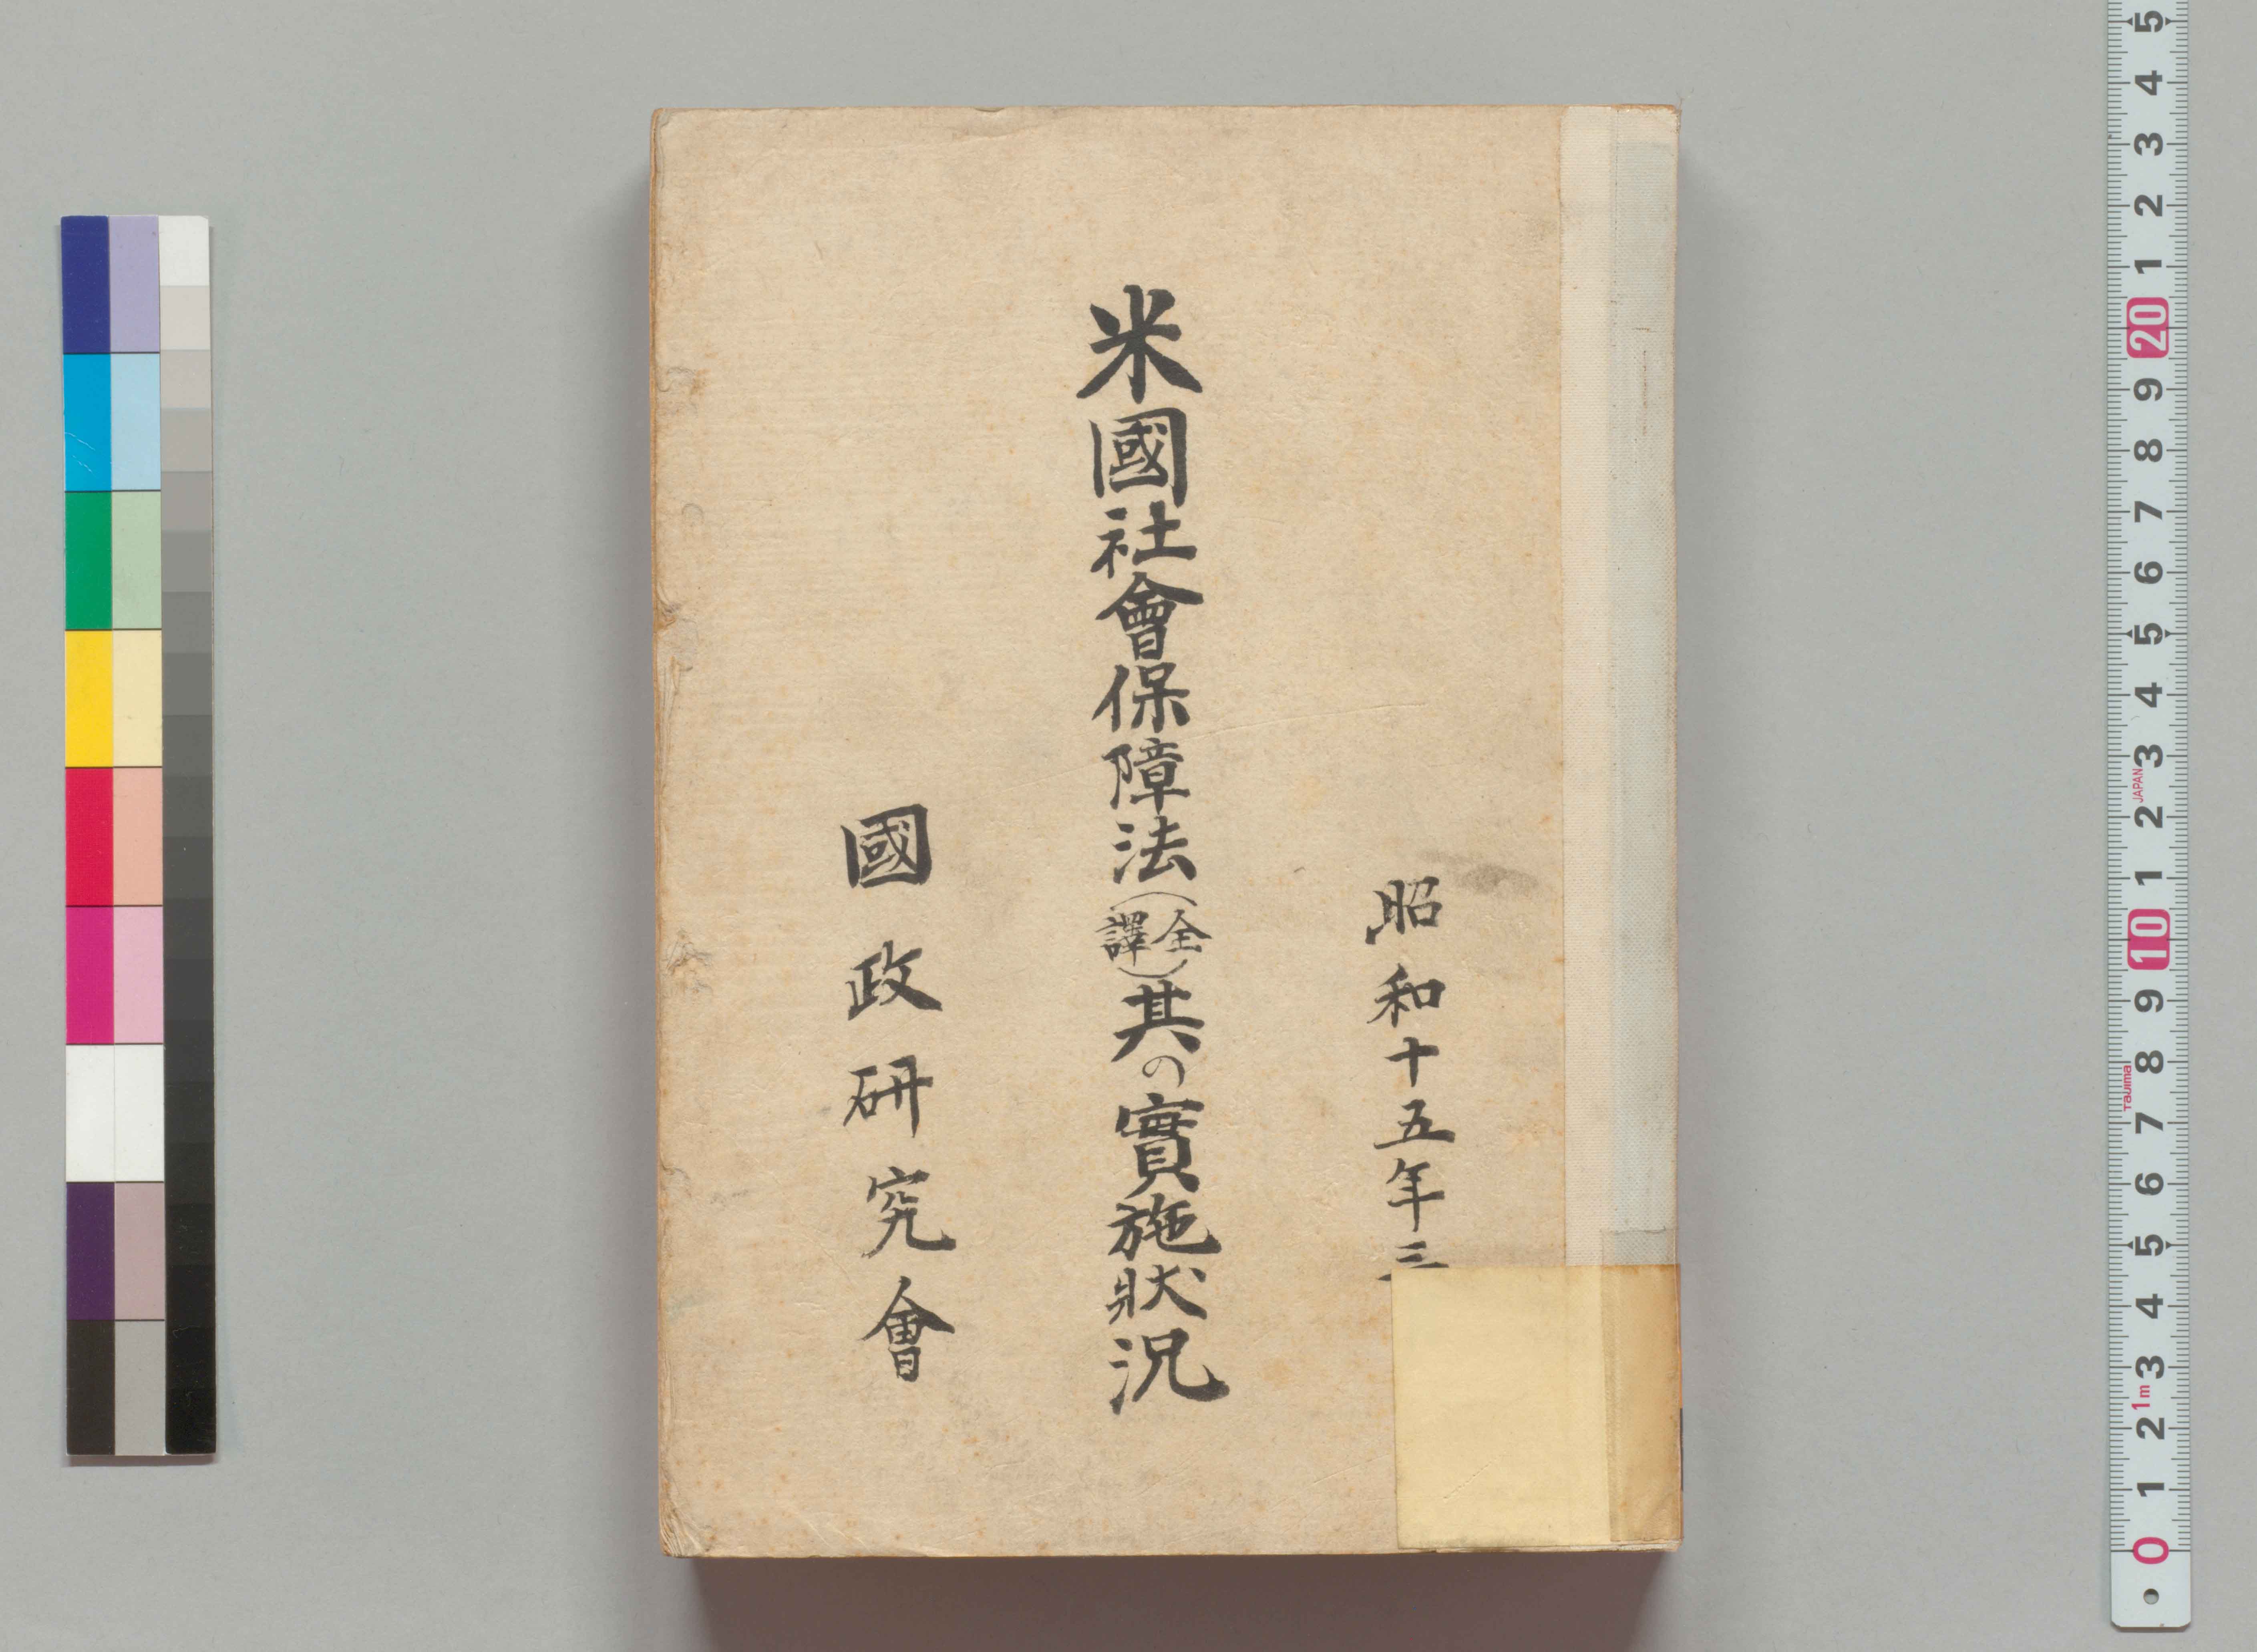 昭和十五年三
米國社會保障法(全譯)其の實施狀況
國政研究會
5
4
3
2
1
20
9
8
7
6
5
4
3
JAPAN
2
1
10
9
8
Tajima
7
6
5
4
3
1m
2
1
0